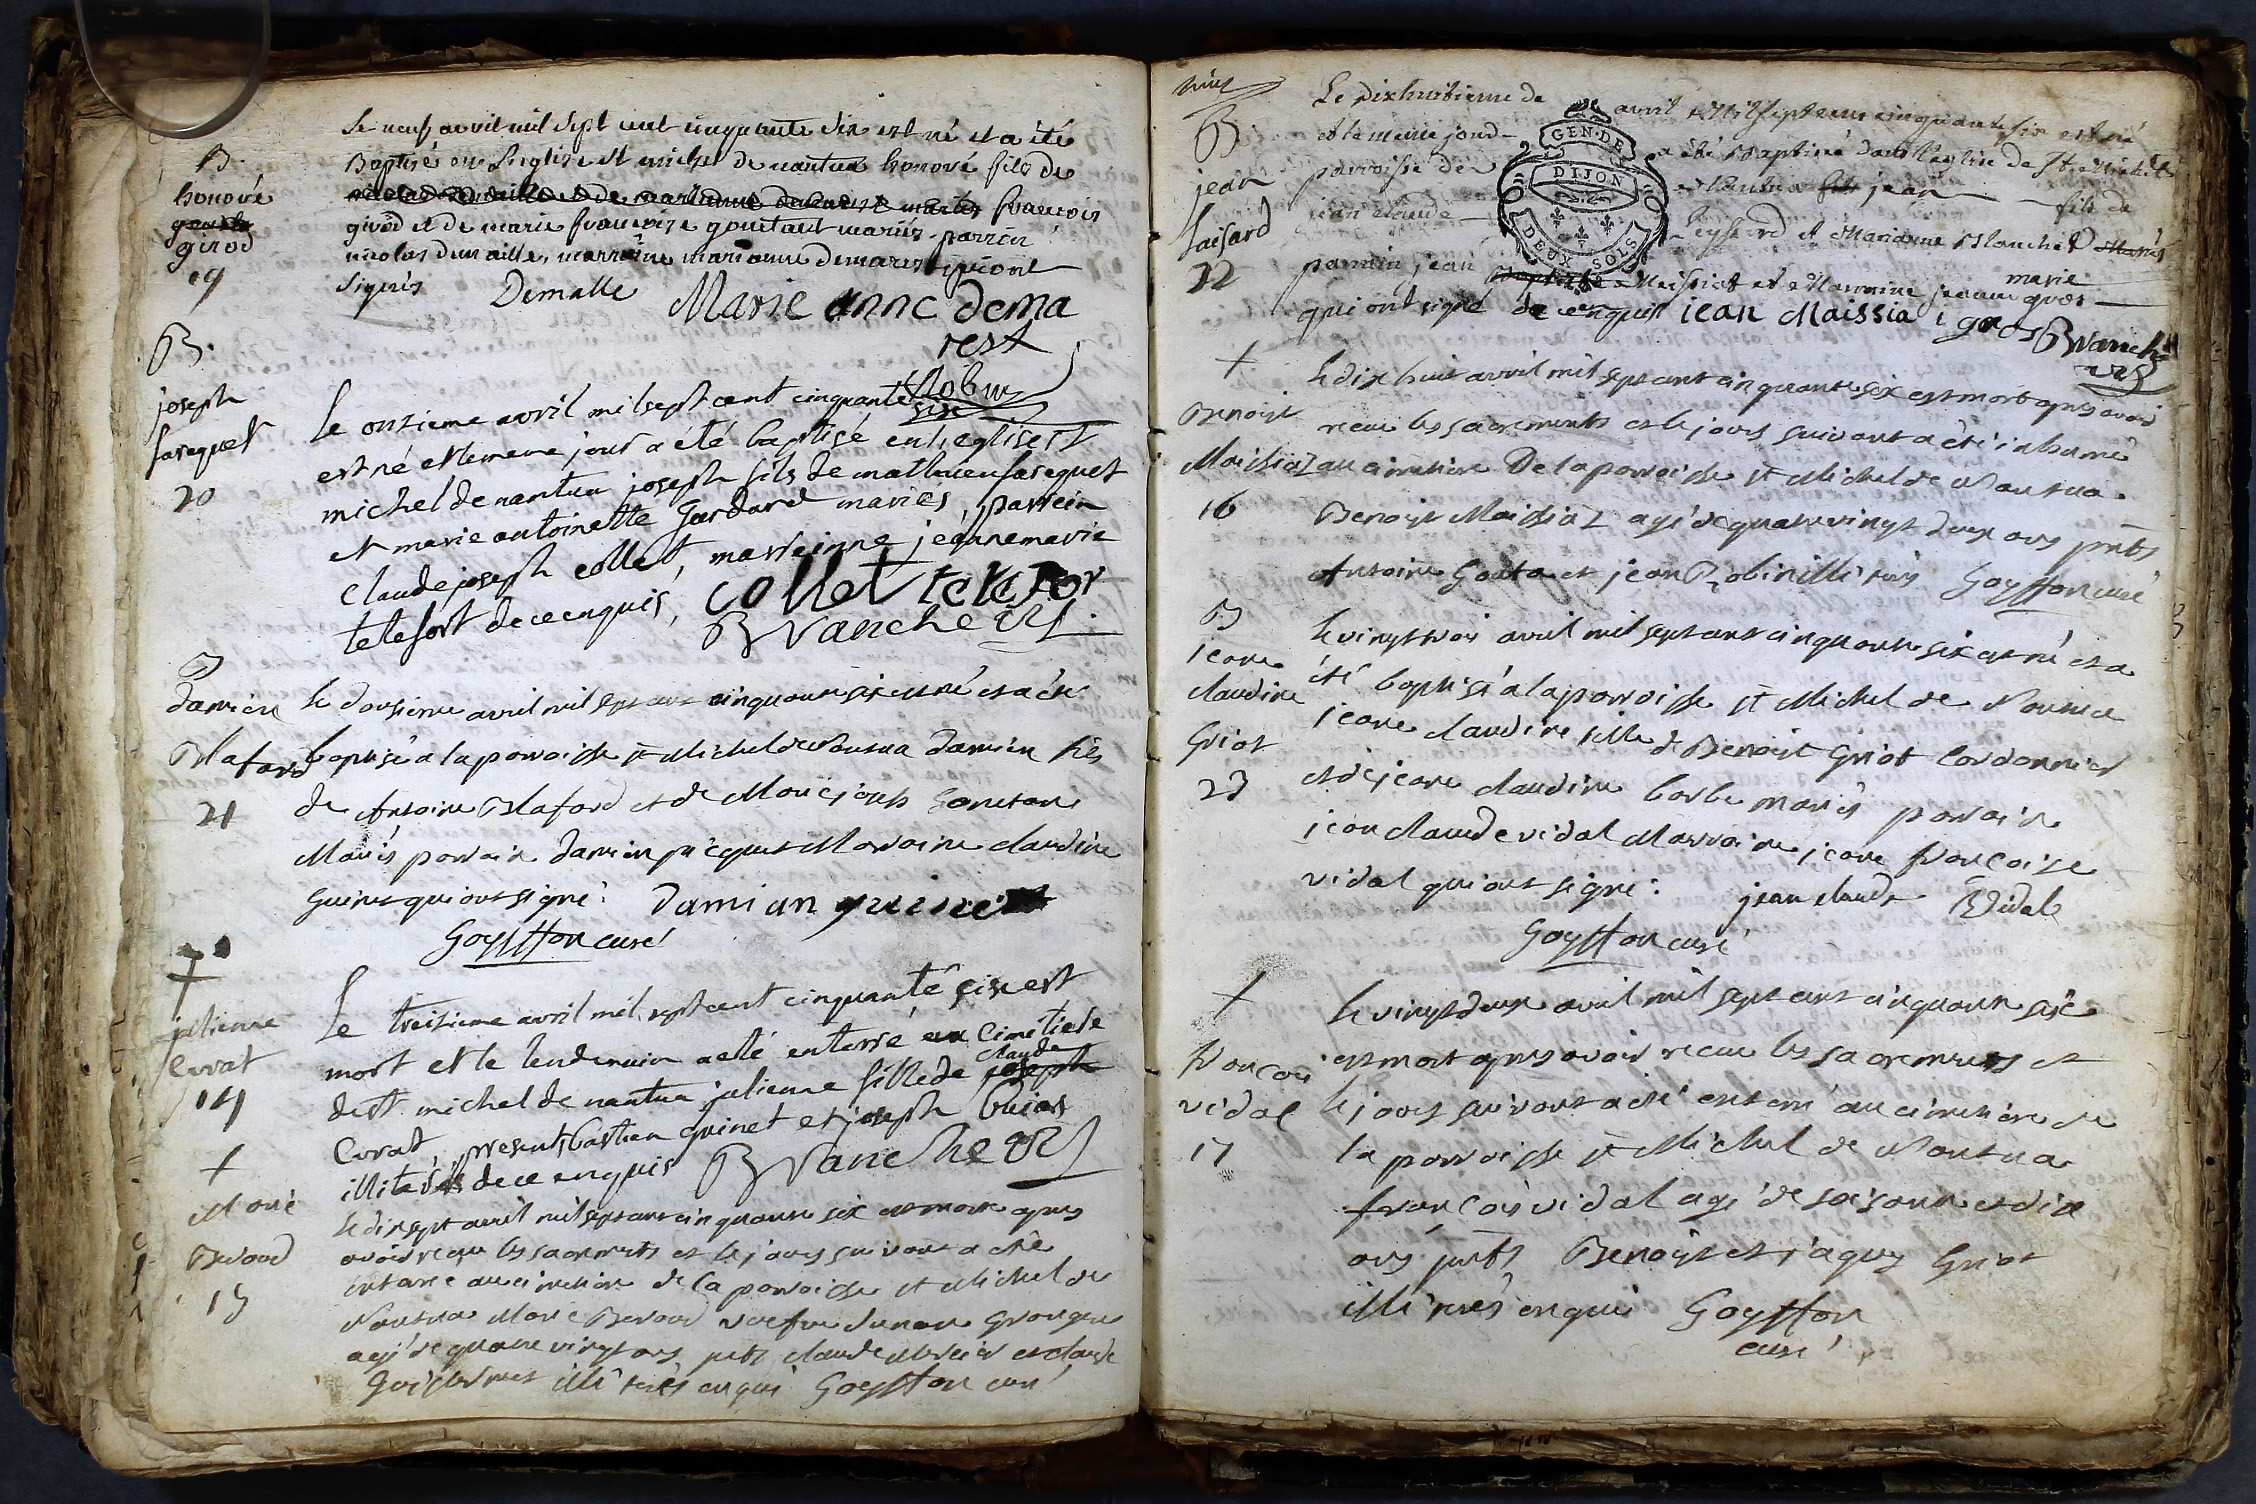 B.
honoré
girod
19
Le neuf avril mil sept cent cinquante six est né et a été
Baptisé en L'eglise st michel de nantua honoré fils de
francois
girod et de marie francoise goutant mariés. parrein
nicolas demailles marreine marianne demarest qui ont
signés Demalle Marie anne dema
rest
Robin
B.
joseph
fasequet
20
Le onzieme avril mil sept cent cinquante six
est né et le meme jour a été baptisé en l'eglise st
michel de nantua joseph fils de mathieu fasequet
et marie antoinette gardard mariés, parrein
claude joseph collet, marreinne jeanne marie
telefort de ce enquis, collet telefor
B vanche
B
damien
Blafard
21
le dousieme avril mil sept cent cinquante six est né et a été
baptisé a la parroisse st Michel de Nantua damien fils
de Antoine Blafard et de
Mariés parrain damien Marraine claudine
guinet qui ont signé: damian guinet
Goyffon curé
†
julienne
Curat
14
Le treisieme avril mil sept cent cinquante six est
mort et le lendemain a eté enterré au cimetiere
de st michel de nantua julienne fille de claude
Curat, presents bastian guinet et joseph
illiterés de ce enquis B vanche
†
Marie
Beroud
15
le dix sept avril mil sept cent cinquante six est morte apres
avoir reçu les sacrements et le jours suivant a été
enterré au cimetiere de la parroisse st Michel de
Nantua Marie Beroud
agé de quatre vingt ans pnts claude Mercier et claude
illiterés enquis Goyffon curé
B
jean
Laisard
22
Le Dixhuitieme de avril Mil sept cens cinquante six est né
et le meme jour a été Baptisé dans l'eglise de St Michel
parroisse de Nantua jean fils de
jean claude et Marianne Blanchet
GEN. DE
DIJON
DEUX SOLS
parrain jean Maissiat et Marraine jeanne marie gros
qui ont signé de ce enquis jean Maissia gros B vanche
†
Benoist
Maissiaz
16
le dix huit avril mil sept cent cinquante six est mort apres avoir
recue les sacrements et le jours suivant a été inhumé
au cimetiere De la parroisse st Michel de Nantua
Benoist Maissiaz agé de quatre vingt deux ans pnts
Antoine Gouta et jean Robin illiterés Goyffon curé
B
jeane
claudine
Griot
23
le vingt avril mil sept cent cinquante six est né et a
été baptisé a la parroisse st Michel de Nantua
jeane claudine fille de Benoist Griot Cordonnier
et de jeane claudine barbe mariés parrain
jean claude vidal Marraine jeane francoise
vidal qui ont signé: jean claude Vidal
Goyffon curé
†
francois
vidal
17
le vingt deux avril mil sept cent cinquante six
est mort apres avoir recue les sacrements et
le jours suivant a été enterré au cimetiere de
la parroisse st Michel de Nantua
francois vidal agé de soisante et dix
ans pnts Benoist et jaques Griot
illiterés enquis Goyffon
curé